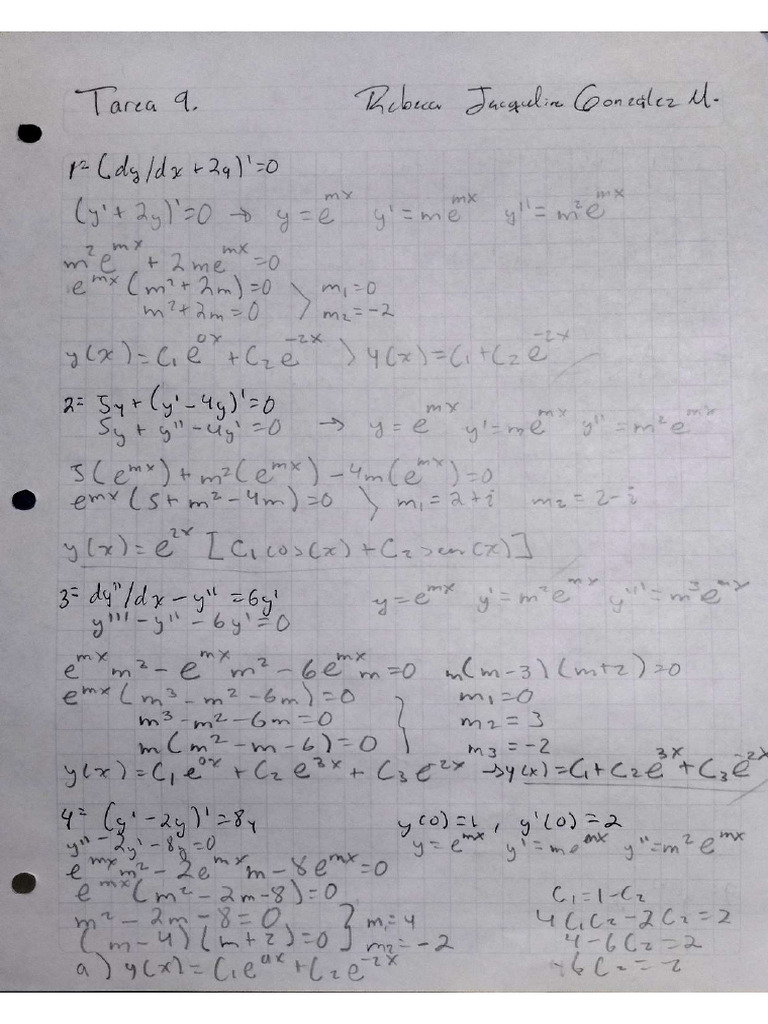 Tarea 9. Rebeca Jacqueline González M.
1= (dy/dx + 2y)' = 0
(y' + 2y)' = 0 → y = e^mx y' = me^mx y'' = m²e^mx
m²e^mx + 2me^mx = 0
e^mx (m² + 2m) = 0 m₁ = 0
m² + 2m = 0 m₂ = -2
y(x) = C₁e^0x + C₂e^-2x > y(x) = C₁ + C₂e^-2x
2= 5y + (y' - 4y)' = 0
5y + y'' - 4y' = 0 → y = e^mx y' = me^mx y'' = m²e^mx
5(e^mx) + m²(e^mx) - 4m(e^mx) = 0
e^mx (5 + m² - 4m) = 0 > m₁ = 2+i m₂ = 2-i
y(x) = e^2x [C₁cos(x) + C₂sen(x)]
3= dy''/dx - y'' = 6y' y = e^mx y' = m²e^mx y''' = m³e^mx
y''' - y'' - 6y' = 0
e^mx m² - e^mx m² - 6e^mx m = 0 m(m-3)(m+2) = 0
e^mx (m³ - m² - 6m) = 0 m₁ = 0
m³ - m² - 6m = 0 m₂ = 3
m(m² - m - 6) = 0 m₃ = -2
y(x) = C₁e^0x + C₂e^3x + C₃e^-2x → y(x) = C₁ + C₂e^3x + C₃e^-2x
4= (y' - 2y)' = 8y y(0) = 1, y'(0) = 2
y'' - 2y' - 8y = 0 y = e^mx y' = me^mx y'' = m²e^mx
e^mx m² - 2e^mx m - 8e^mx = 0
e^mx (m² - 2m - 8) = 0 C₁ = 1 - C₂
m² - 2m - 8 = 0 m₁ = 4 4C₁C₂ - 2C₂ = 2
(m - 4)(m + 2) = 0 m₂ = -2 4 - 6C₂ = 2
a) y(x) = C₁e^4x + C₂e^-2x -6C₂ = -2